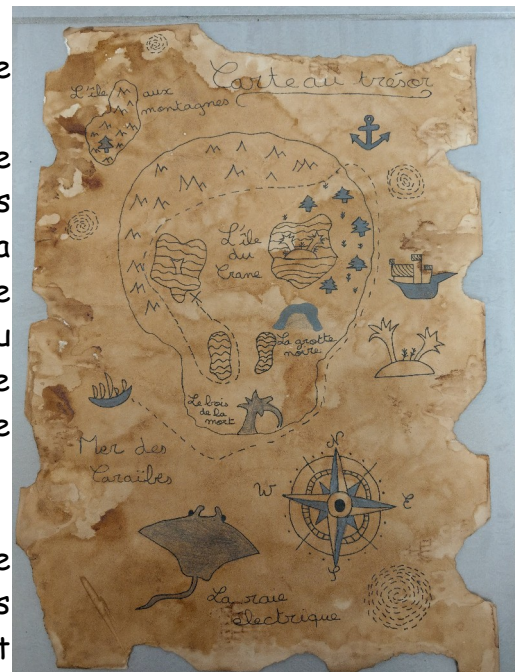 Carte au trésor
L'île aux
montagnes
L'île
du
Crane
La grotte
noire
Le bois
de la
mort
Mer des
Caraïbes
N
W E
S
La raie
électrique